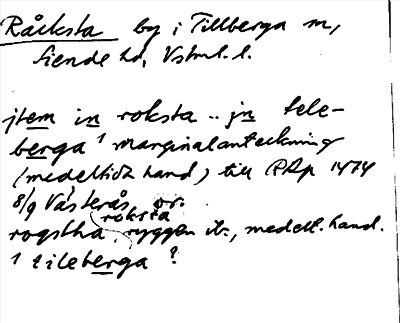 Råcksta by i Tillberga sn,
Siende hd, Vstml. l.
jtem in roksta .. jn tele-
berga ¹ marginalanteckning
(medeltida hand) till PAp 1474
8/9 Västerås, or.
roksta
rogstha, ryggen it., medelt. hand.
¹ tileberga ?